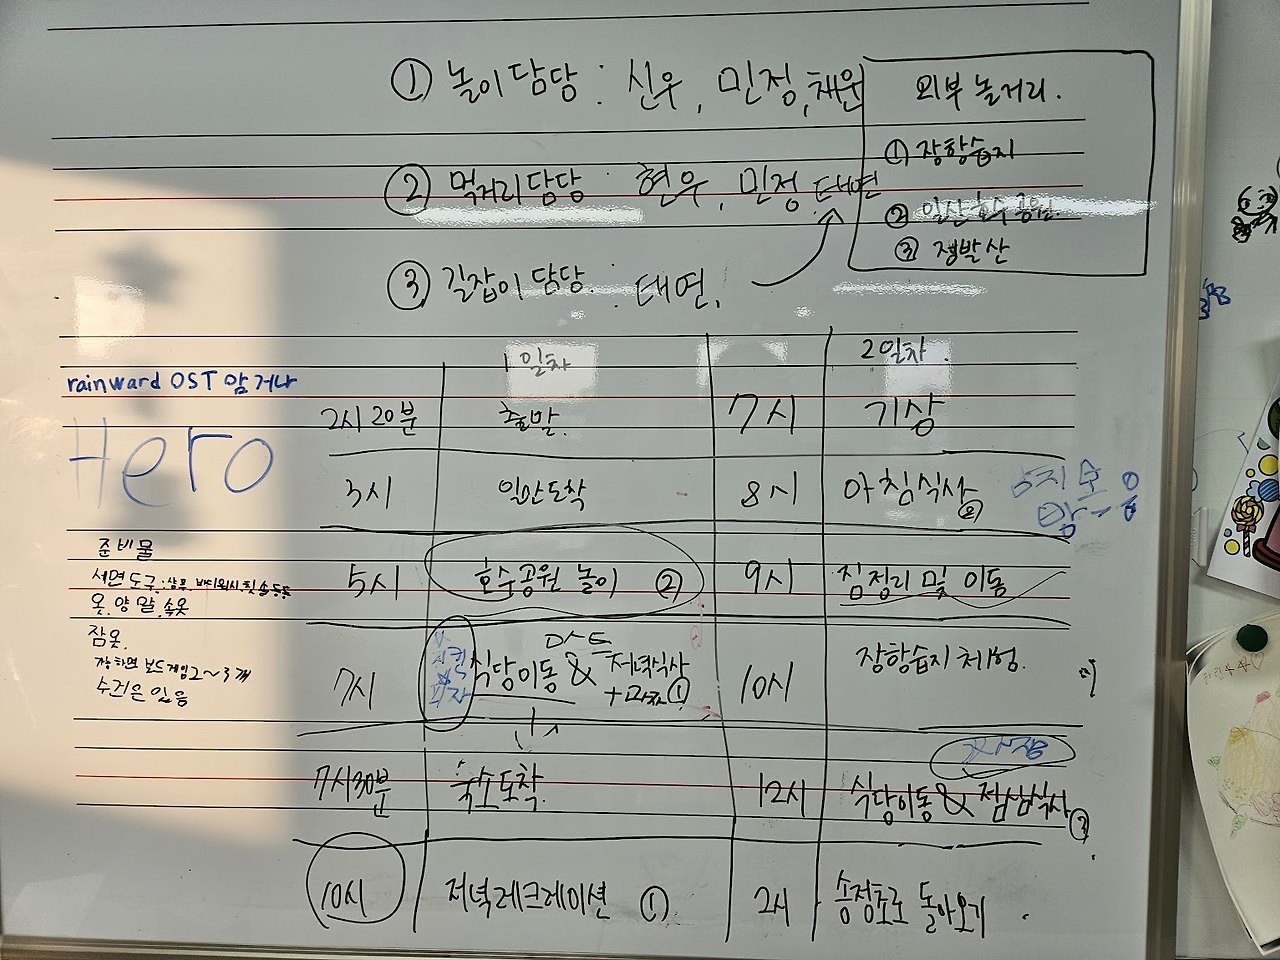 ① 놀이 담당 : 신우, 민정, 채운
② 먹거리 담당 현우, 민정, 태연
③ 길잡이 담당 : 태연,
외부 놀거리.
① 장항습지
② 일산호수공원.
③ 정발산
rainward OST 암거나
Hero
준비물
세면도구: 샴푸, 바디워시, 칫솔 등등
옷, 양말, 속옷
잠옷.
장하면 보드게임 2~3개
수건은 있음
1일차 2일차.
2시 20분 출발. 7시 기상
3시 일산도착 8시 아침식사 ②
5시 호수공원 놀이 ② 9시 짐정리 및 이동
마트
7시 식당이동 & 저녁식사 10시 장항습지 체험.
치킨 피자
7시 30분 숙소도착. 12시 식당이동 & 점심식사 ③
10시 저녁레크레이션 ① 2시 송정초로 돌아오기.